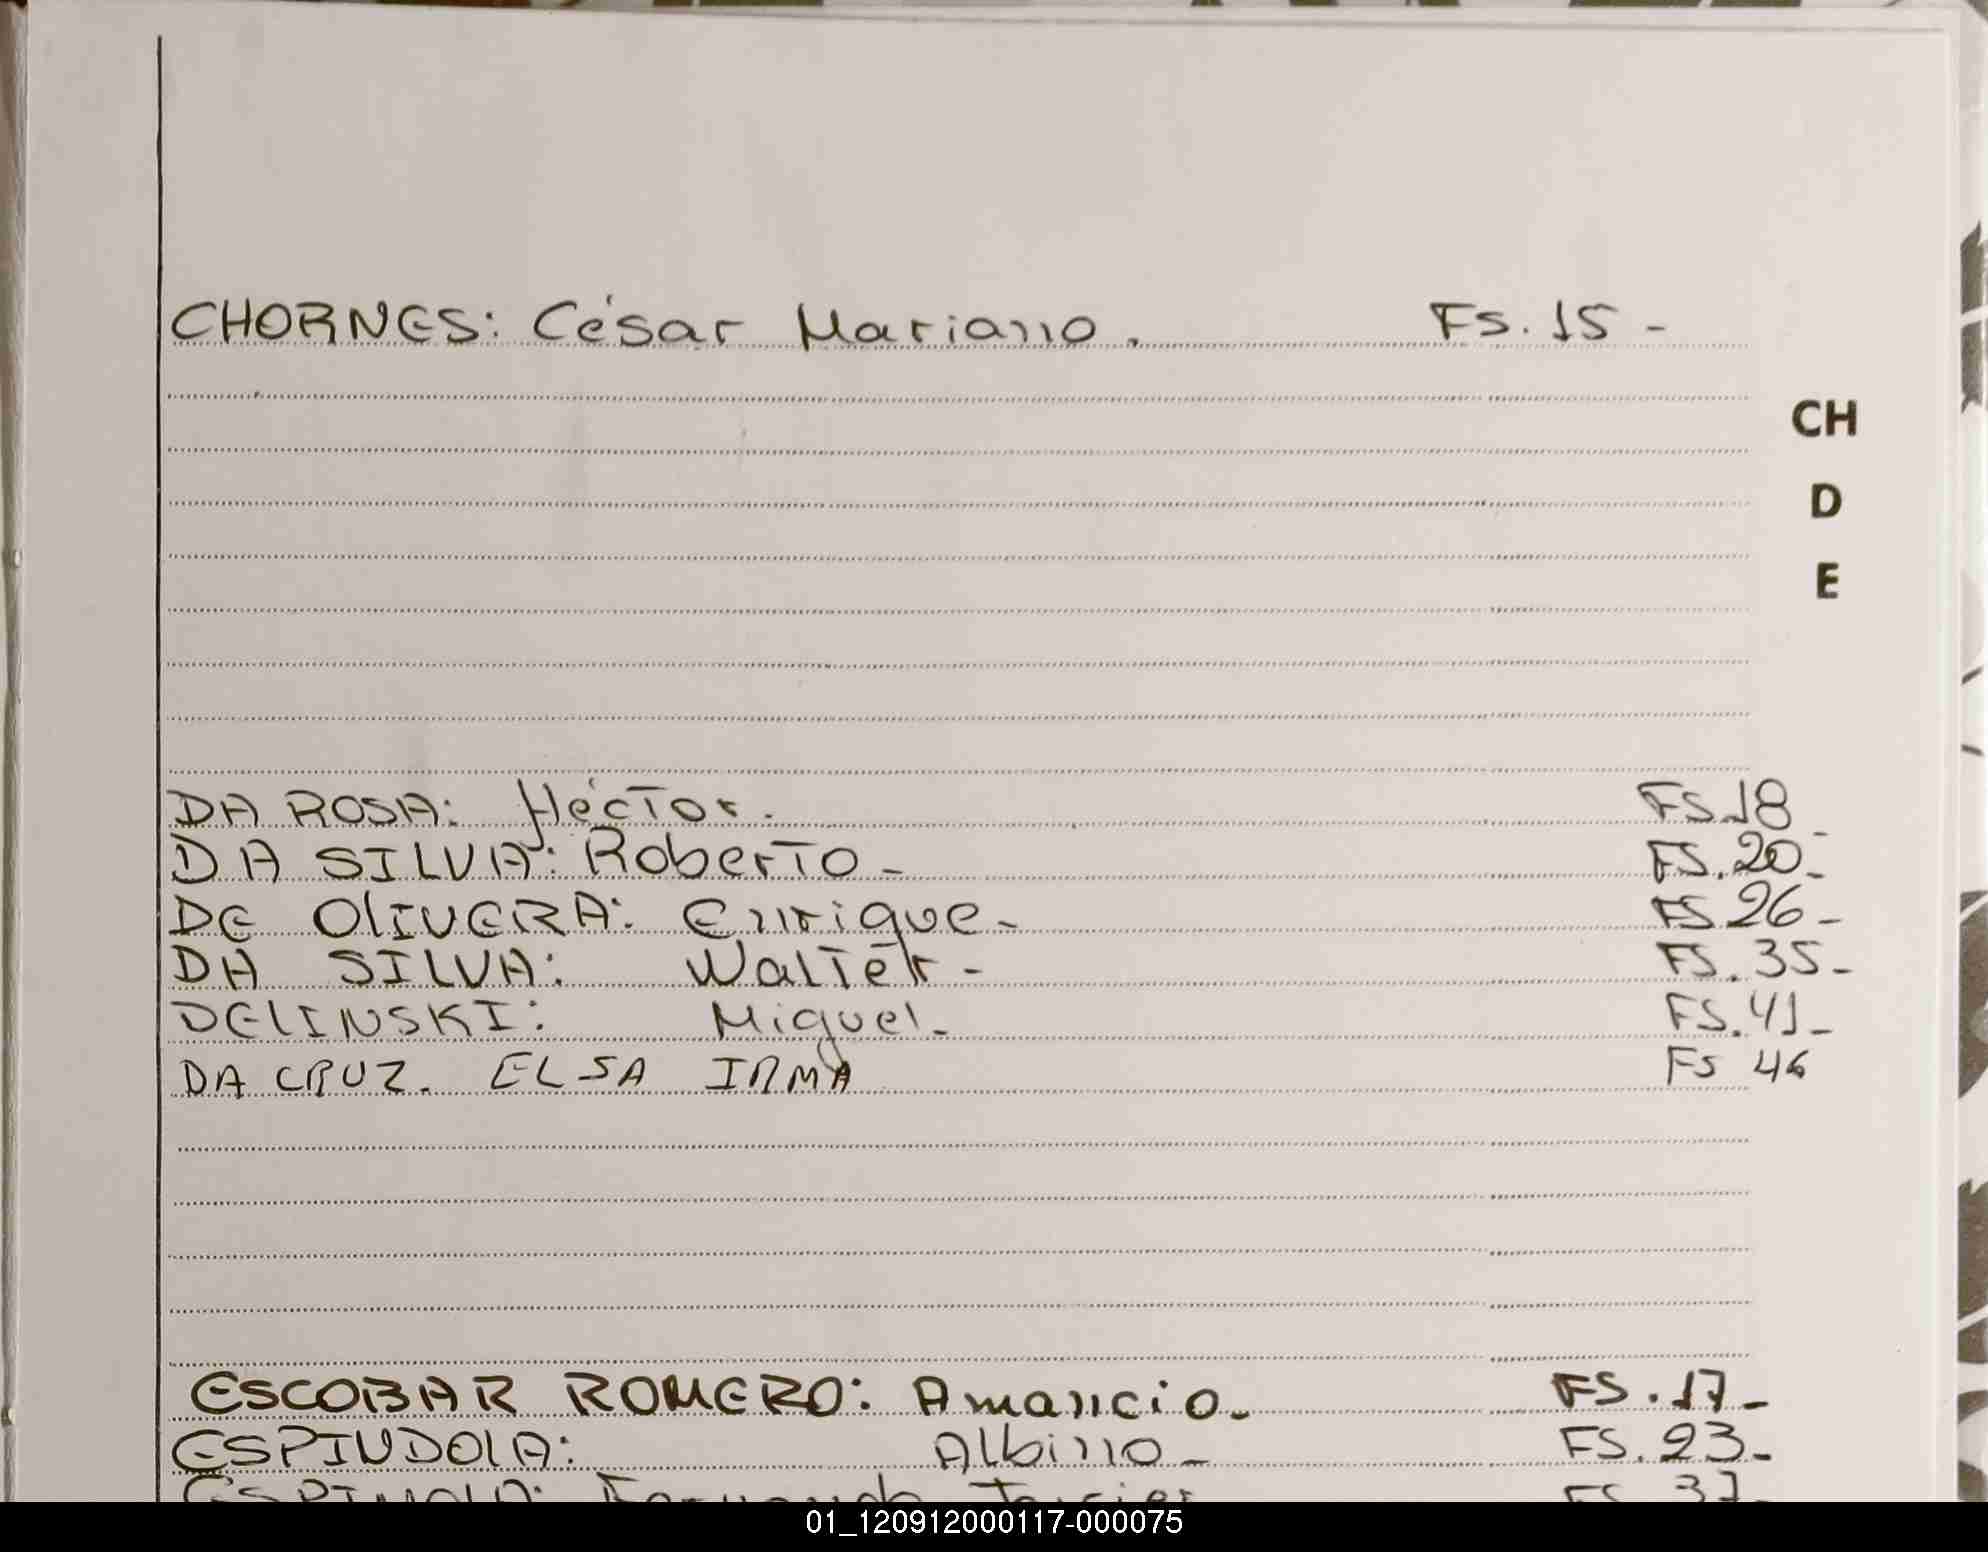 CHORNES: César Mariano. Fs. 15 -
CH
D
E
DA ROSA: Héctor. FS.18 -
DA SILVA: Roberto - FS. 20 -
DE OlIVERA: Enrique - FS 26 -
DA SILVA: Walter - FS. 35 -
DElINSKI: Miguel - FS. 41 -
DA CRUZ. ELSA IRMA FS 46
ESCOBAR ROMERO: Amancio - FS. 17 -
ESPINDOlA: Albino - FS. 23 -
Fernando Javier FS 37 -
01_120912000117-000075